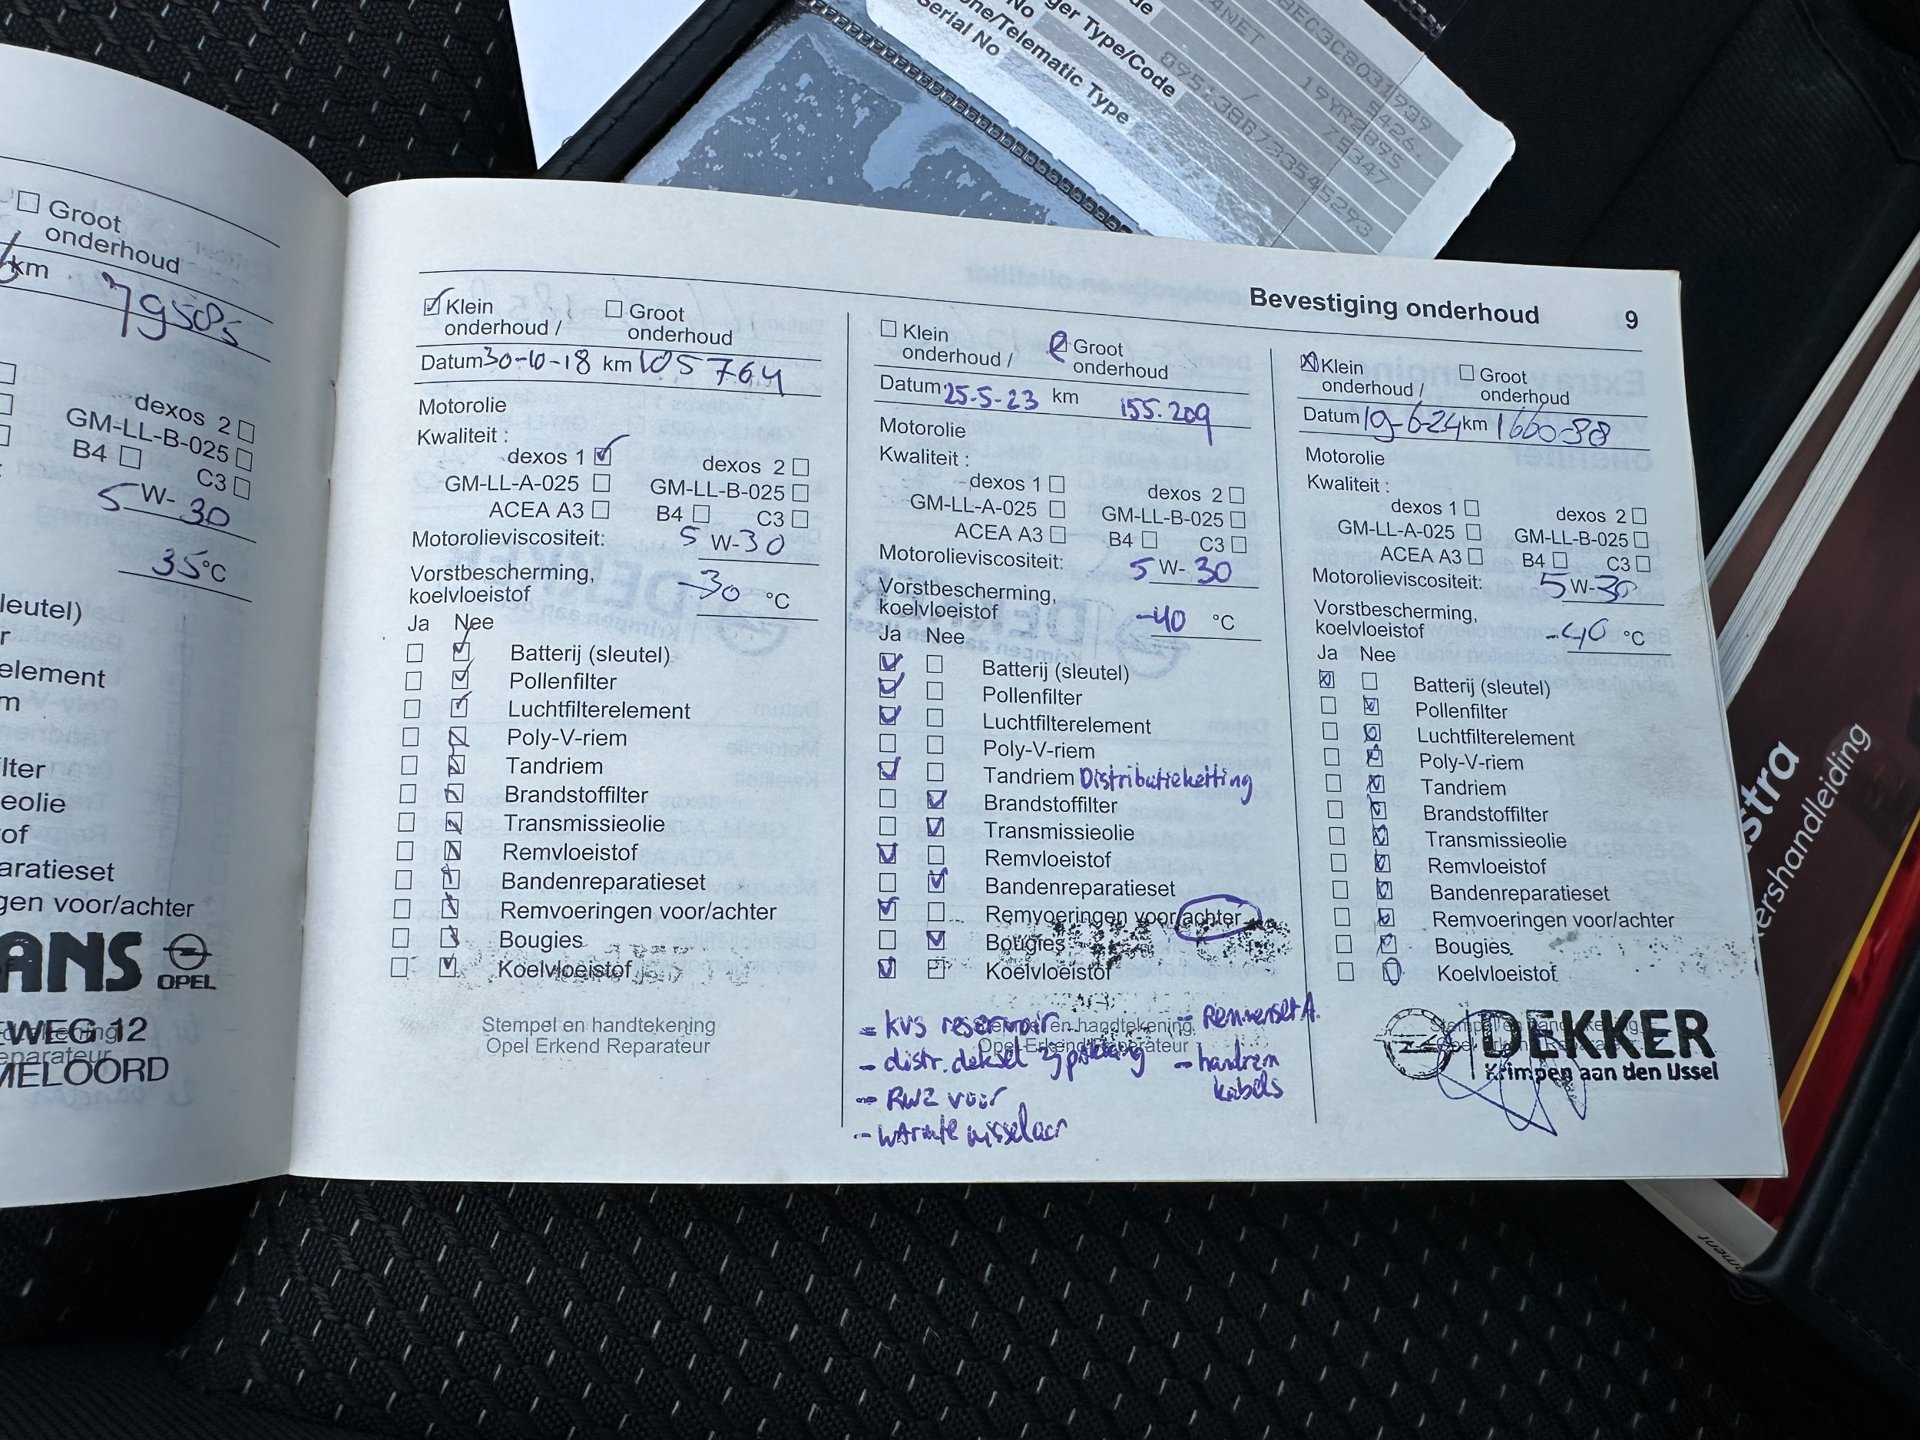 ger Type/Code
one/Telematic Type
Serial No
19YR2895
Groot
onderhoud
km 79585
dexos 2
GM-LL-B-025
B4 C3
5 W- 30
35°C
leutel)
element
ilter
eolie
of
aratieset
gen voor/achter
ANS
OPEL
WEG 12
MELOORD
Bevestiging onderhoud 9
Klein Groot
onderhoud / onderhoud
Datum 30-10-18 km 105764
Motorolie
Kwaliteit :
dexos 1 dexos 2
GM-LL-A-025 GM-LL-B-025
ACEA A3 B4 C3
Motorolieviscositeit: 5 W-30
Vorstbescherming,
koelvloeistof -30 °C
Ja Nee
Batterij (sleutel)
Pollenfilter
Luchtfilterelement
Poly-V-riem
Tandriem
Brandstoffilter
Transmissieolie
Remvloeistof
Bandenreparatieset
Remvoeringen voor/achter
Bougies
Koelvloeistof
Stempel en handtekening
Opel Erkend Reparateur
Klein Groot
onderhoud / onderhoud
Datum 25-5-23 km 155.209
Motorolie
Kwaliteit :
dexos 1 dexos 2
GM-LL-A-025 GM-LL-B-025
ACEA A3 B4 C3
Motorolieviscositeit: 5 W- 30
Vorstbescherming,
koelvloeistof -40 °C
Ja Nee
Batterij (sleutel)
Pollenfilter
Luchtfilterelement
Poly-V-riem
Tandriem Distributieketting
Brandstoffilter
Transmissieolie
Remvloeistof
Bandenreparatieset
Remvoeringen voor/achter
Bougies
Koelvloeistof
Stempel en handtekening
Opel Erkend Reparateur
- kvs reservoir
- distr. deksel
- RWZ voor
- warmte wisselaar
- Remmenset A.
- handrem
kabels
Klein Groot
onderhoud / onderhoud
Datum 19-6-24 km 166098
Motorolie
Kwaliteit :
dexos 1 dexos 2
GM-LL-A-025 GM-LL-B-025
ACEA A3 B4 C3
Motorolieviscositeit: 5 W-30
Vorstbescherming,
koelvloeistof -40 °C
Ja Nee
Batterij (sleutel)
Pollenfilter
Luchtfilterelement
Poly-V-riem
Tandriem
Brandstoffilter
Transmissieolie
Remvloeistof
Bandenreparatieset
Remvoeringen voor/achter
Bougies
Koelvloeistof
DEKKER
Krimpen aan den IJssel
stra
ershandleiding